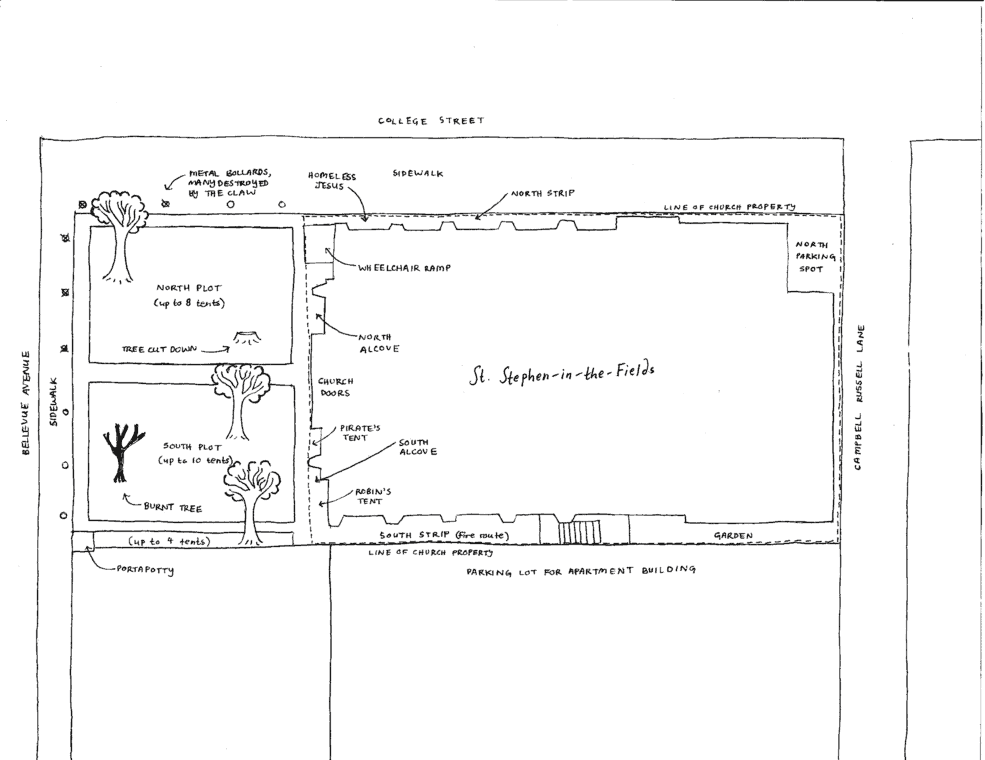 COLLEGE STREET
METAL BOLLARDS,
MANY DESTROYED
BY THE CLAW
HOMELESS
JESUS
SIDEWALK
NORTH STRIP
LINE OF CHURCH PROPERTY
NORTH
PARKING
SPOT
WHEELCHAIR RAMP
NORTH PLOT
(up to 8 tents)
NORTH
ALCOVE
TREE CUT DOWN
BELLEVUE AVENUE
SIDEWALK
CHURCH
DOORS
St. Stephen-in-the-Fields
CAMPBELL RUSSELL LANE
PIRATE'S
TENT
SOUTH
ALCOVE
SOUTH PLOT
(up to 10 tents)
ROBIN'S
TENT
BURNT TREE
(up to 4 tents)
SOUTH STRIP (Fire route)
GARDEN
LINE OF CHURCH PROPERTY
PORTAPOTTY
PARKING LOT FOR APARTMENT BUILDING